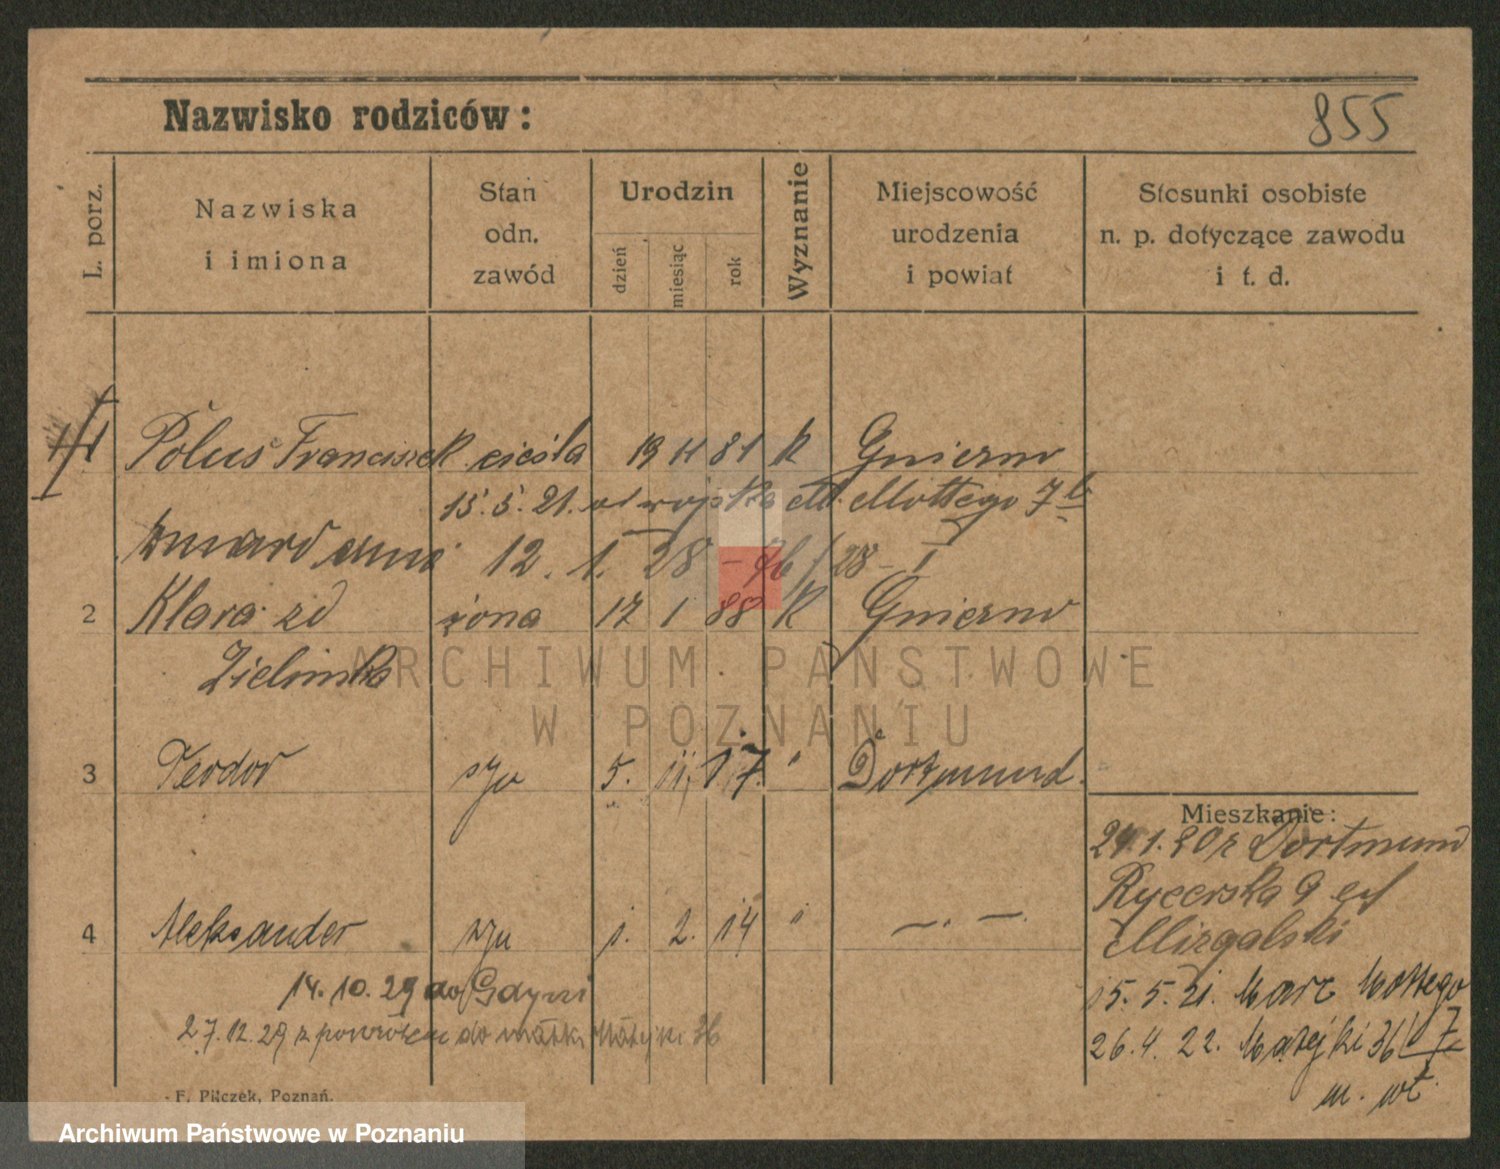 Nazwisko rodziców:
855
L. porz.
Nazwiska
i imiona
Stan
odn.
zawód
Urodzin
dzień
miesiąc
rok
Wyznanie
Miejscowość
urodzenia
i powiat
Stosunki osobiste
n. p. dotyczące zawodu
i t. d.
1 Polus Franciszek cieśla 19 11 81 k Gniezno
15.5.21. od wojska M. Mottego 7
12. 1. 28 - 96/28 - I
2 Klara zd żona 17 1 88 k Gniezno
Zielinska
ARCHIWUM PAŃSTWOWE
W POZNANIU
3 Teodor syn 5. 11. 17. " Dortmund.
Mieszkanie:
24.1.20 z Dortmund
Rycerska 9
Mizgalski
4 Aleksander syn 1. 2. 14 " — " —
15. 5. 21. Marc Mottego 7
14.10.29 do Gdyni
27.12.29 z powrotem do matki Matejki 36
26.4.22. Matejki 36
m. wł.
F. Pilczek, Poznań.
Archiwum Państwowe w Poznaniu